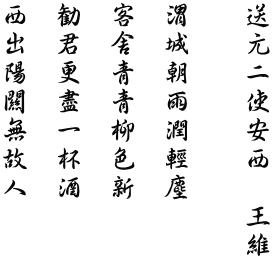 送元二使安西　王維
渭城朝雨潤輕塵
客舍青青柳色新
勸君更盡一杯酒
西出陽關無故人